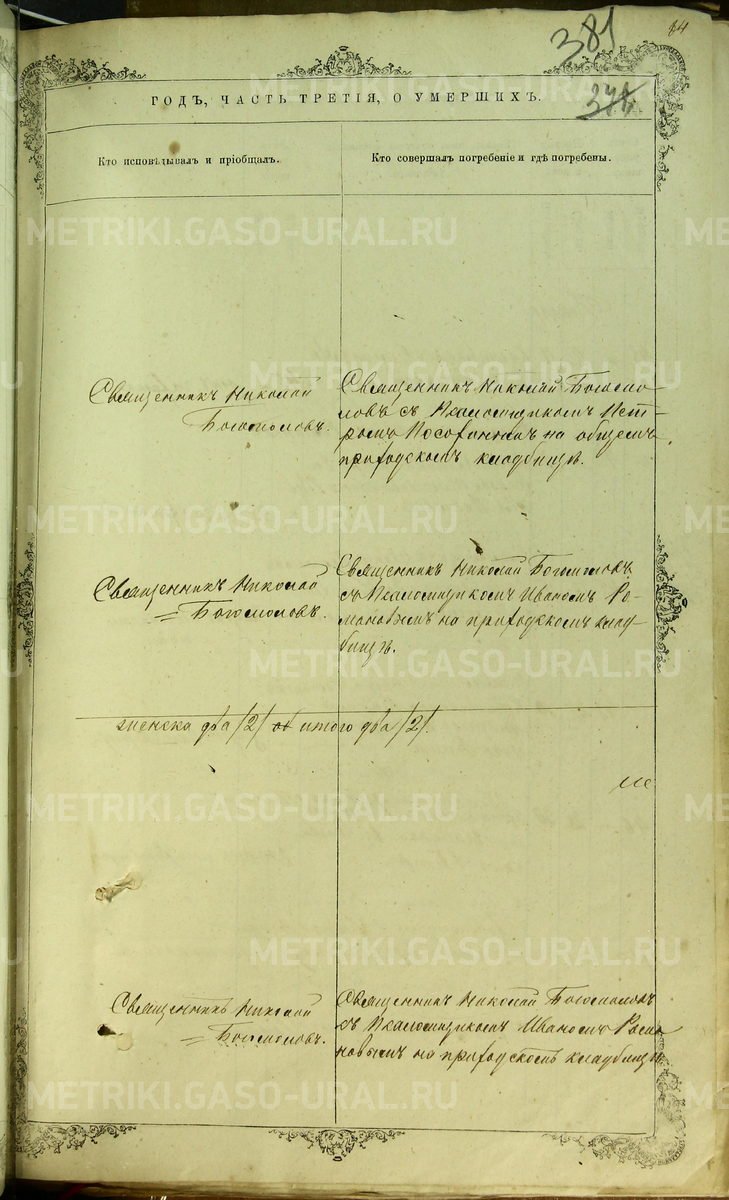 84
381
ГОДЪ, ЧАСТЬ ТРЕТІЯ, О УМЕРШИХЪ.
Кто исповѣдывалъ и пріобщалъ.
Кто совершалъ погребеніе и гдѣ погребены.
Священникъ Николай
Богомоловъ.
Священникъ Николай Богомо-
ловъ съ Псаломщикомъ Пет-
ромъ на общемъ
приходскомъ кладбищѣ.
Священникъ Николай
= Богомоловъ.
Священникъ Николай Богомоловъ
съ Псаломщикомъ Иваномъ Ро-
мановымъ на приходскомъ клад-
бищѣ.
женска два /2/ итого два /2/.
Священникъ Николай
= Богомоловъ.
Священникъ Николай Богомоловъ
съ Псаломщикомъ Иваномъ Рома-
новымъ на приходскомъ кладбищѣ
METRIKI.GASO-URAL.RU